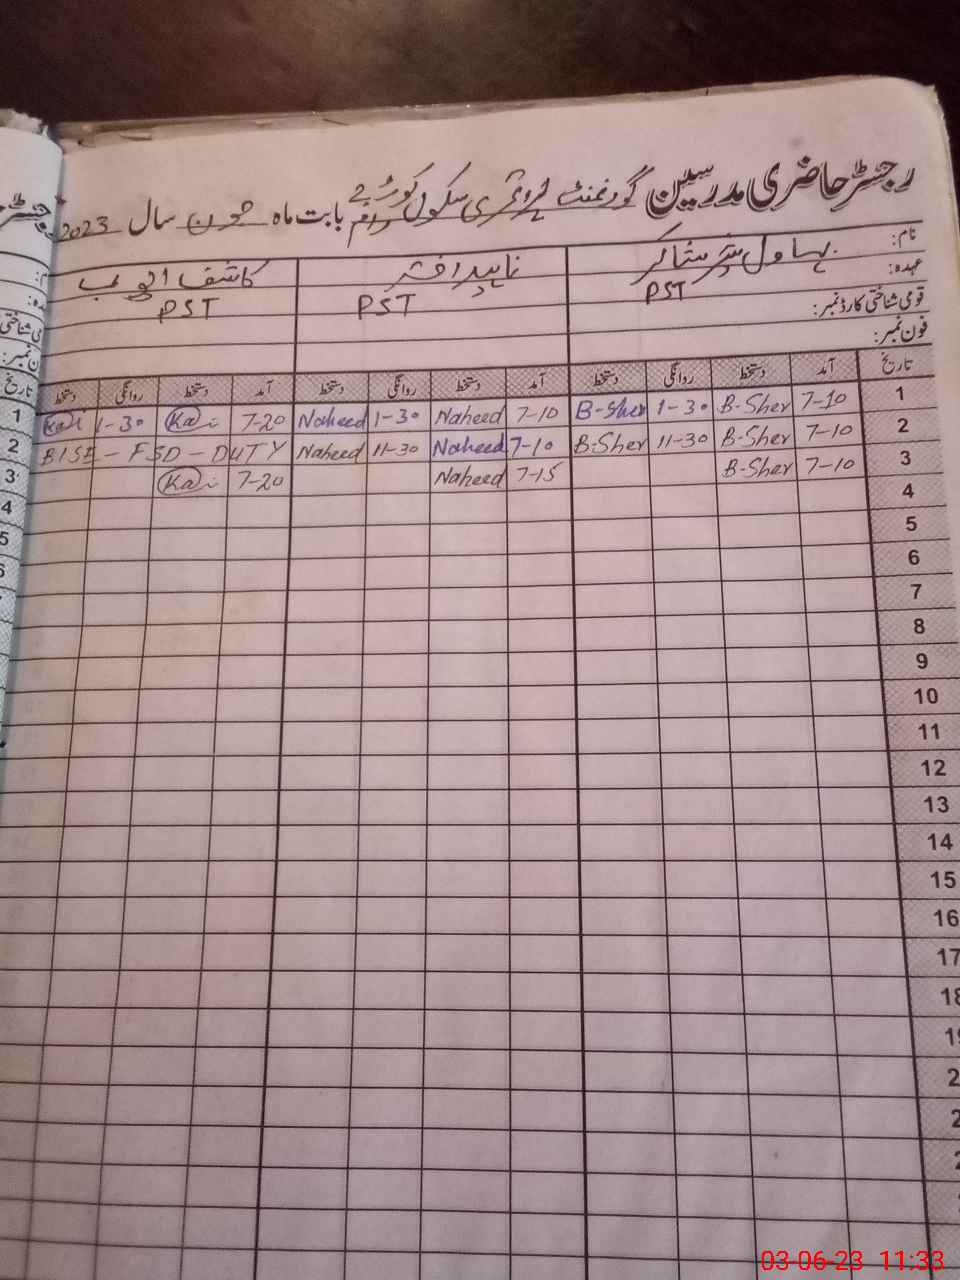 رجسٹر حاضری مدرسین گورنمنٹ پرائمری سکول بابت ماہ جون سال 2023
نام: بہاول شیر شاکر ناہید اختر کاشف ایوب
عہدہ: PST PST PST
قومی شناختی کارڈ نمبر:
فون نمبر:
تاریخ آمد دستخط روانگی دستخط آمد دستخط روانگی دستخط آمد دستخط روانگی دستخط
1 7-10 B-Sher 1-30 B-Sher 7-10 Naheed 1-30 Naheed 7-20 1-30
2 7-10 B-Sher 11-30 B-Sher 7-10 Naheed 11-30 Naheed BISE - FSD - DUTY
3 7-10 B-Sher 7-15 Naheed 7-20
4
5
6
7
8
9
10
11
12
13
14
15
16
17
18
03-06-23 11:33